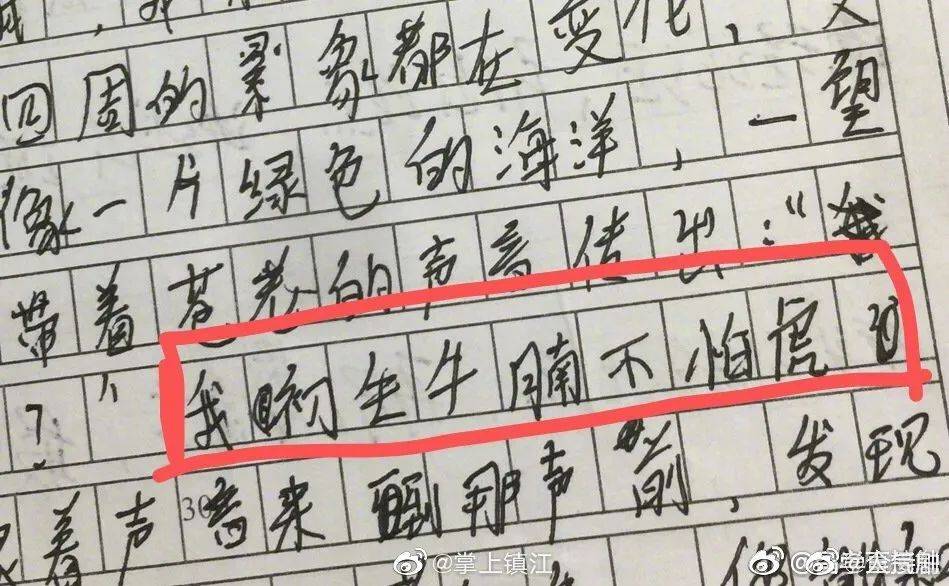 四周的景象都在变化，又
像一片绿色的海洋，一望
带着苍老的声音传出："
？" 我初生牛腩不怕虎的
着声音来到那声前，发现
30
@掌上镇江